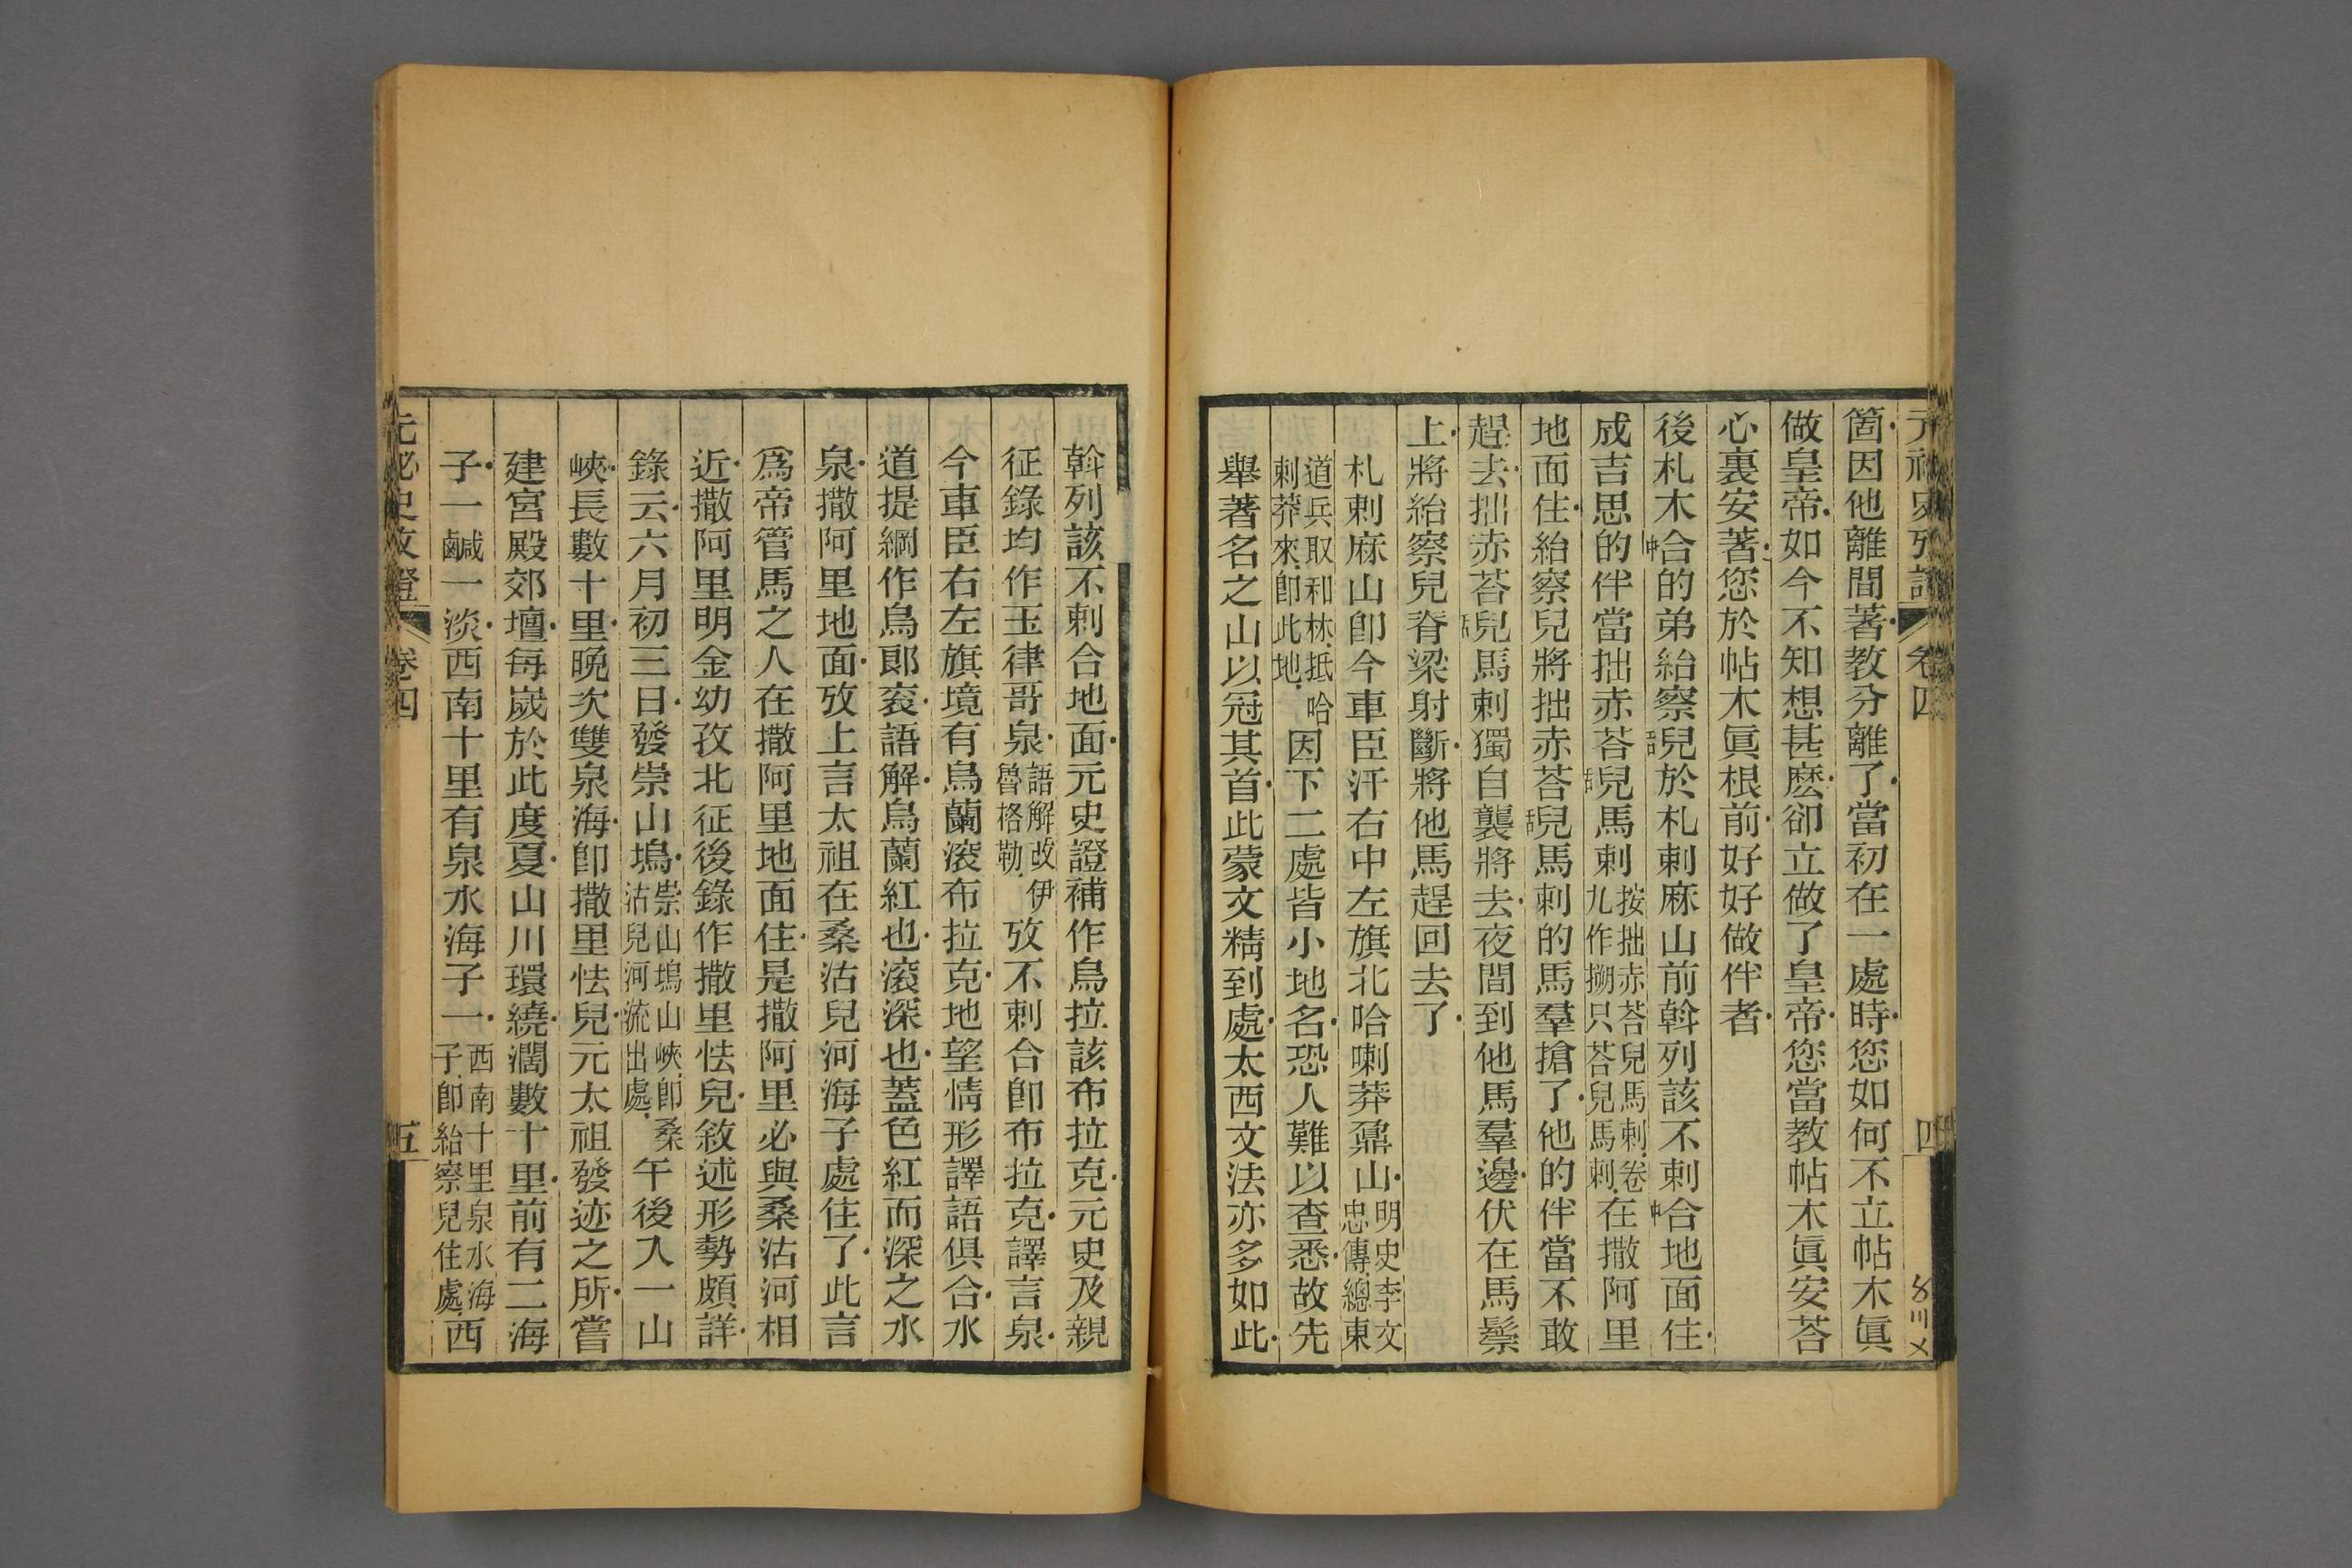 箇因他離間著教分離了當初在一處時您如何不立帖木眞
做皇帝如今不知想甚麽卻立做了皇帝您當教帖木眞安荅
心裏安著您於帖木眞根前好好做伴者
後札木中合的弟紿察舌兒於札剌麻山前斡列該不剌中合地面住
成吉思的伴當拙赤荅舌兒馬剌按拙赤荅兒馬剌卷九作搠只荅兒馬剌在撒阿里
地面住紿察兒將拙赤荅舌兒馬剌的馬羣搶了他的伴當不敢
趕去拙赤荅舌兒馬剌獨自襲將去夜間到他馬羣邊伏在馬鬃
上將紿察兒脊梁射斷將他馬趕回去了
札剌麻山卽今車臣汗右中左旗北哈喇莽鼐山明史李文忠傳總東
道兵取和林抵哈剌莽來卽此地因下二處皆小地名恐人難以查悉故先
舉著名之山以冠其首此蒙文精到處太西文法亦多如此
四
斡列該不剌合地面元史證補作烏拉該布拉克元史及親
征錄均作玉律哥泉語解改伊魯格勒攷不剌合卽布拉克譯言泉
今車臣右左旗境有烏蘭滚布拉克地望情形譯語俱合水
道提綱作烏郎衮語解烏蘭紅也滚深也蓋色紅而深之水
泉撒阿里地面攷上言太祖在桑沽兒河海子處住了此言
爲帝管馬之人在撒阿里地面住是撒阿里必與桑沽河相
近撒阿里明金幼孜北征後錄作撒里怯兒敘述形勢頗詳
錄云六月初三日發崇山塢崇山塢山峽卽桑沽兒河流出處午後入一山
峽長數十里晚次雙泉海卽撒里怯兒元太祖發迹之所嘗
建宮殿郊壇每嵗於此度夏山川環繞濶數十里前有二海
子一鹹一淡西南十里有泉水海子一西南十里泉水海子卽紿察兒住處西
元祕史攷證
卷四
五